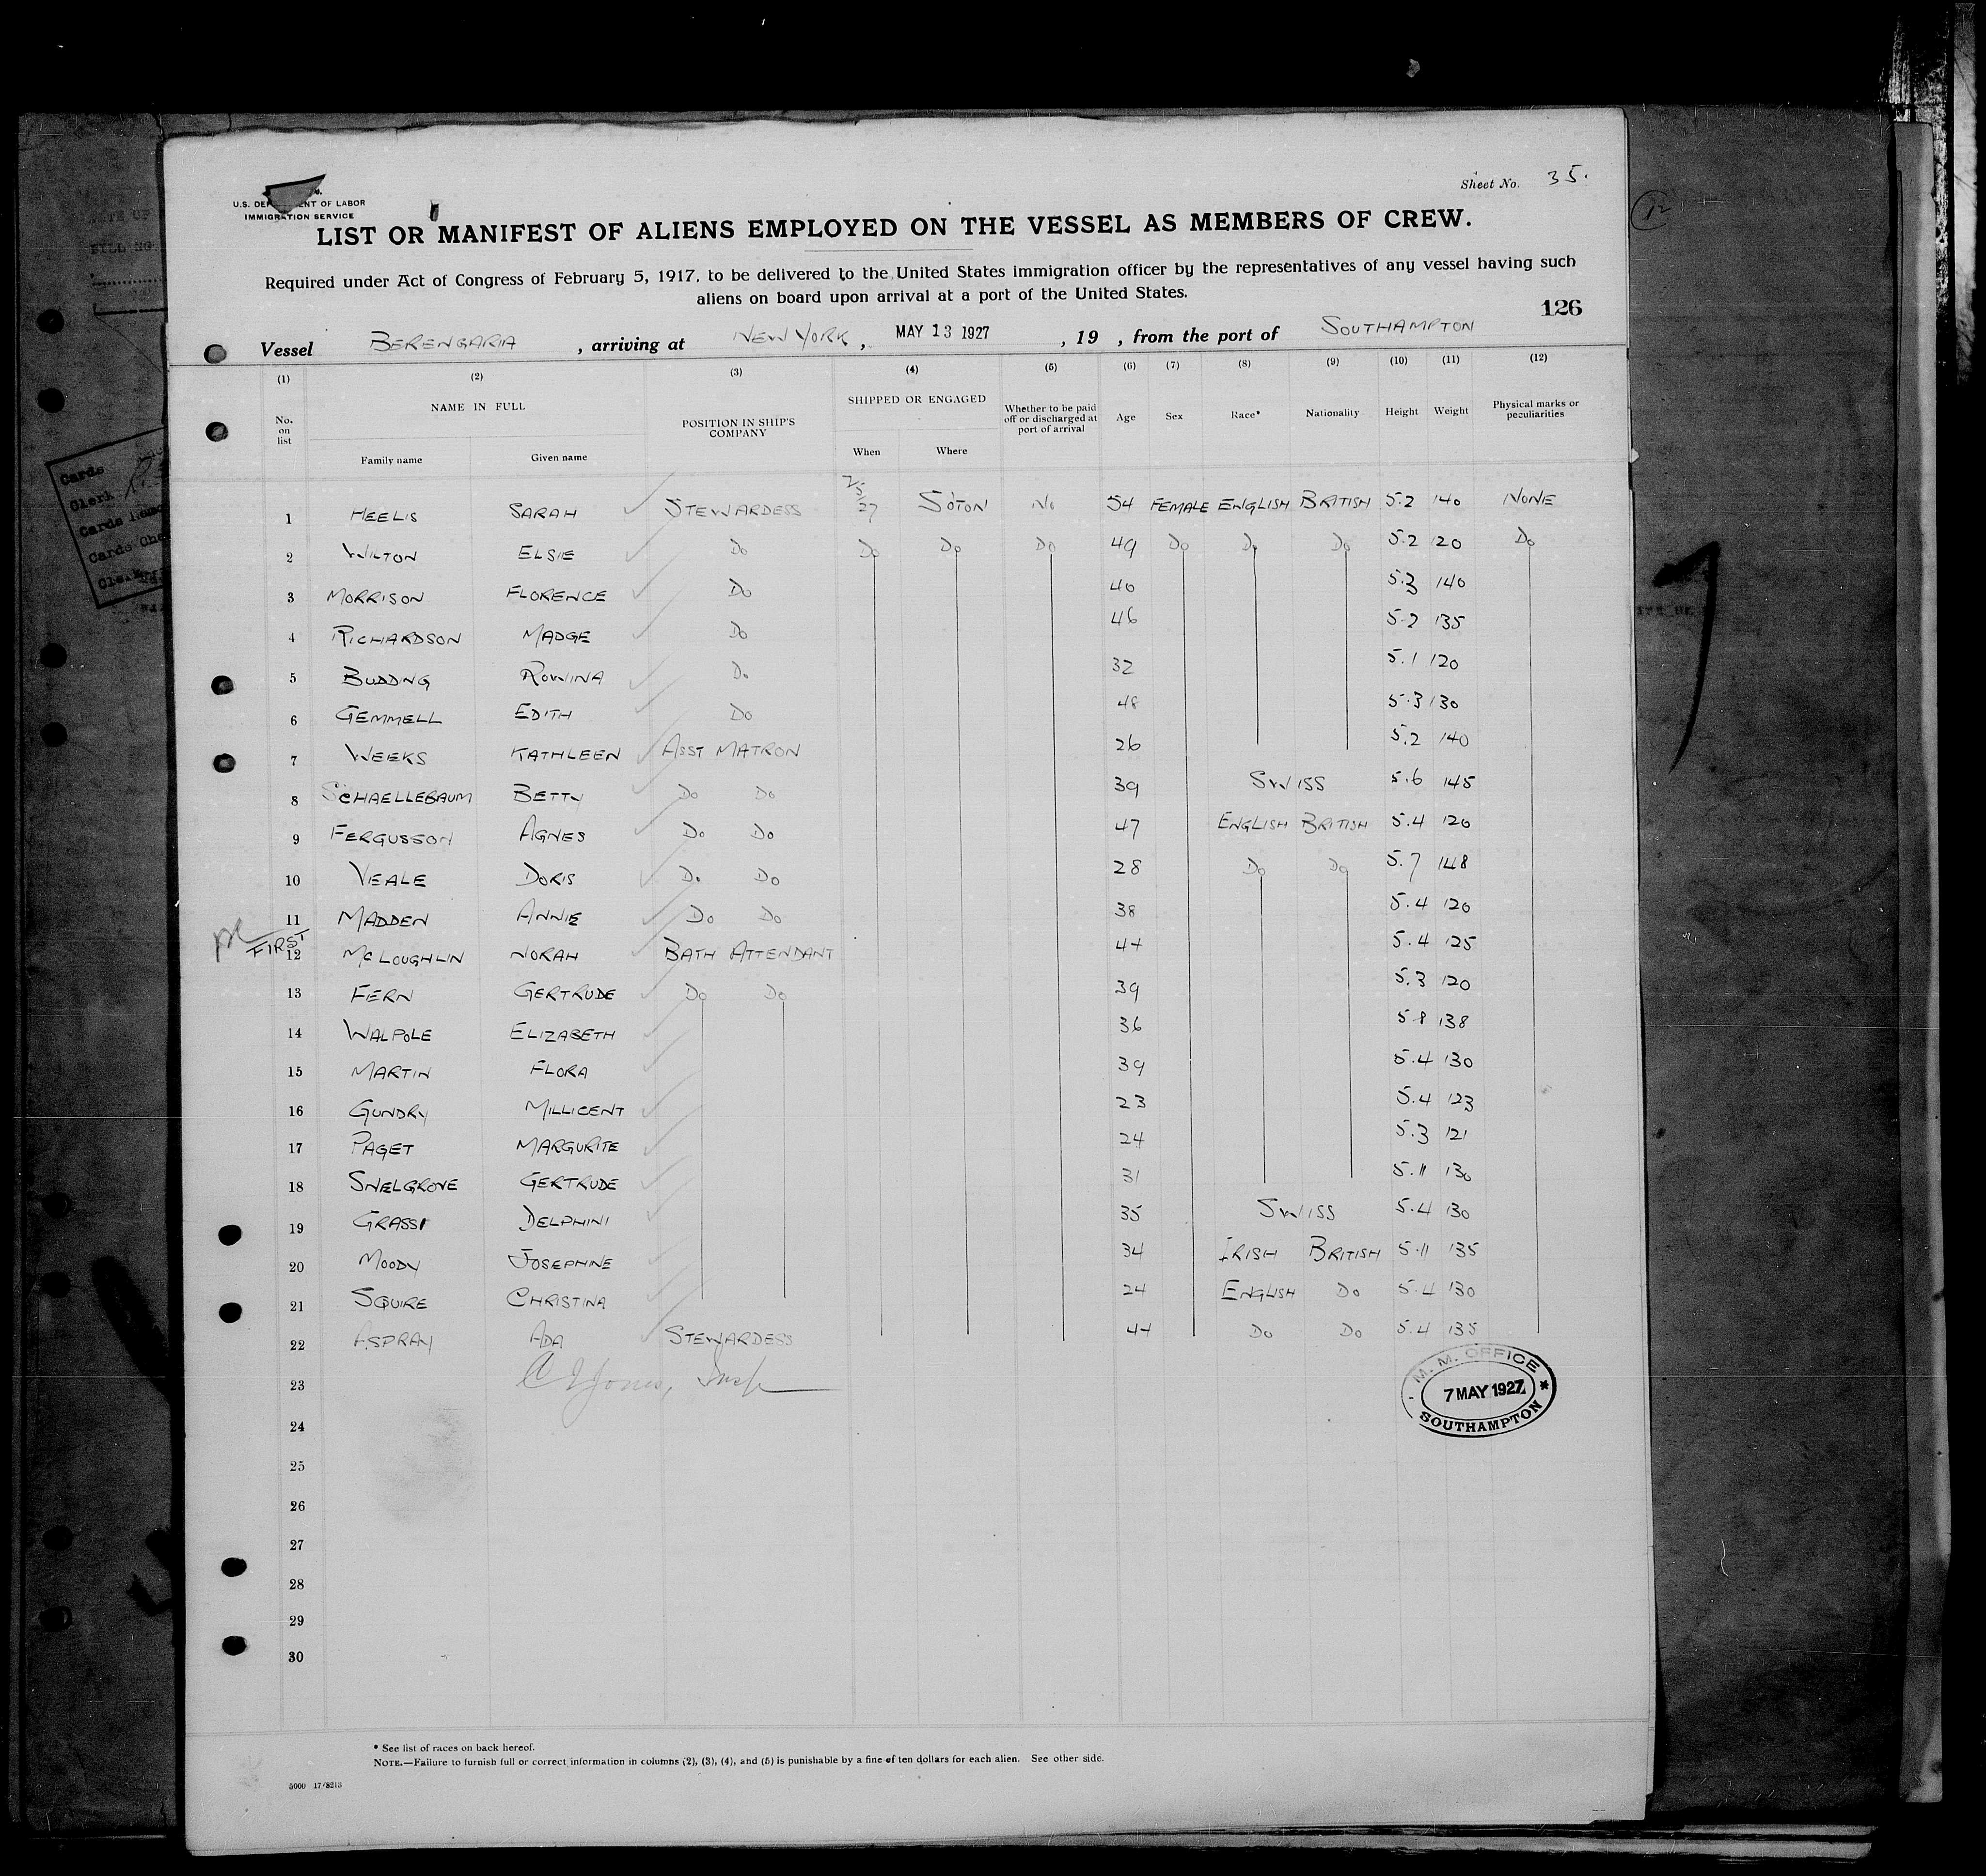 Sheet No. 35.
U.S. DEP ENT OF LABOR
IMMIGRATION SERVICE
LIST OR MANIFEST OF ALIENS EMPLOYED ON THE VESSEL AS MEMBERS OF CREW.
Required under Act of Congress of February 5, 1917, to be delivered to the United States immigration officer by the representatives of any vessel having such
aliens on board upon arrival at a port of the United States.
126
Vessel BERENGARIA , arriving at NEW YORK , MAY 13 1927 , 19 , from the port of SOUTHAMPTON
(1) (2) (3) (4) (5) (6) (7) (8) (9) (10) (11) (12)
No. on list NAME IN FULL POSITION IN SHIP'S COMPANY SHIPPED OR ENGAGED Whether to be paid off or discharged at port of arrival Age Sex Race* Nationality Height Weight Physical marks or peculiarities
Family name Given name When Where
1 HEELIS SARAH STEWARDESS 7/5/27 SOTON No 54 FEMALE ENGLISH BRITISH 5.2 140 NONE
2 WILTON ELSIE Do Do Do Do 49 Do Do Do 5.2 120 Do
3 MORRISON FLORENCE Do 40 5.3 140
4 RICHARDSON MADGE Do 46 5.2 135
5 BUDDING ROWINA Do 32 5.1 120
6 GEMMELL EDITH Do 48 5.3 130
7 WEEKS KATHLEEN ASST MATRON 26 5.2 140
8 SCHAELLEBAUM BETTY Do Do 39 SWISS 5.6 145
9 FERGUSSON AGNES Do Do 47 ENGLISH BRITISH 5.4 120
10 VEALE DORIS Do Do 28 Do Do 5.7 148
11 MADDEN ANNIE Do Do 38 5.4 120
FIRST
12 McLOUGHLIN NORAH BATH ATTENDANT 44 5.4 125
13 FERN GERTRUDE Do Do 39 5.3 120
14 WALPOLE ELIZABETH 36 5.8 138
15 MARTIN FLORA 39 5.4 130
16 GUNDRY MILLICENT 23 5.4 123
17 PAGET MARGURITE 24 5.3 121
18 SNELGROVE GERTRUDE 31 5.11 130
19 GRASSI DELPHINI 35 SWISS 5.4 130
20 MOODY JOSEPHINE 34 IRISH BRITISH 5.11 135
21 SQUIRE CHRISTINA 24 ENGLISH Do 5.4 130
22 ASPRAY ADA STEWARDESS 44 Do Do 5.4 135
23
M. M. OFFICE
7 MAY 1927
SOUTHAMPTON
24
25
26
27
28
29
30
* See list of races on back hereof.
NOTE.—Failure to furnish full or correct information in columns (2), (3), (4), and (5) is punishable by a fine of ten dollars for each alien. See other side.
5000 17/8213